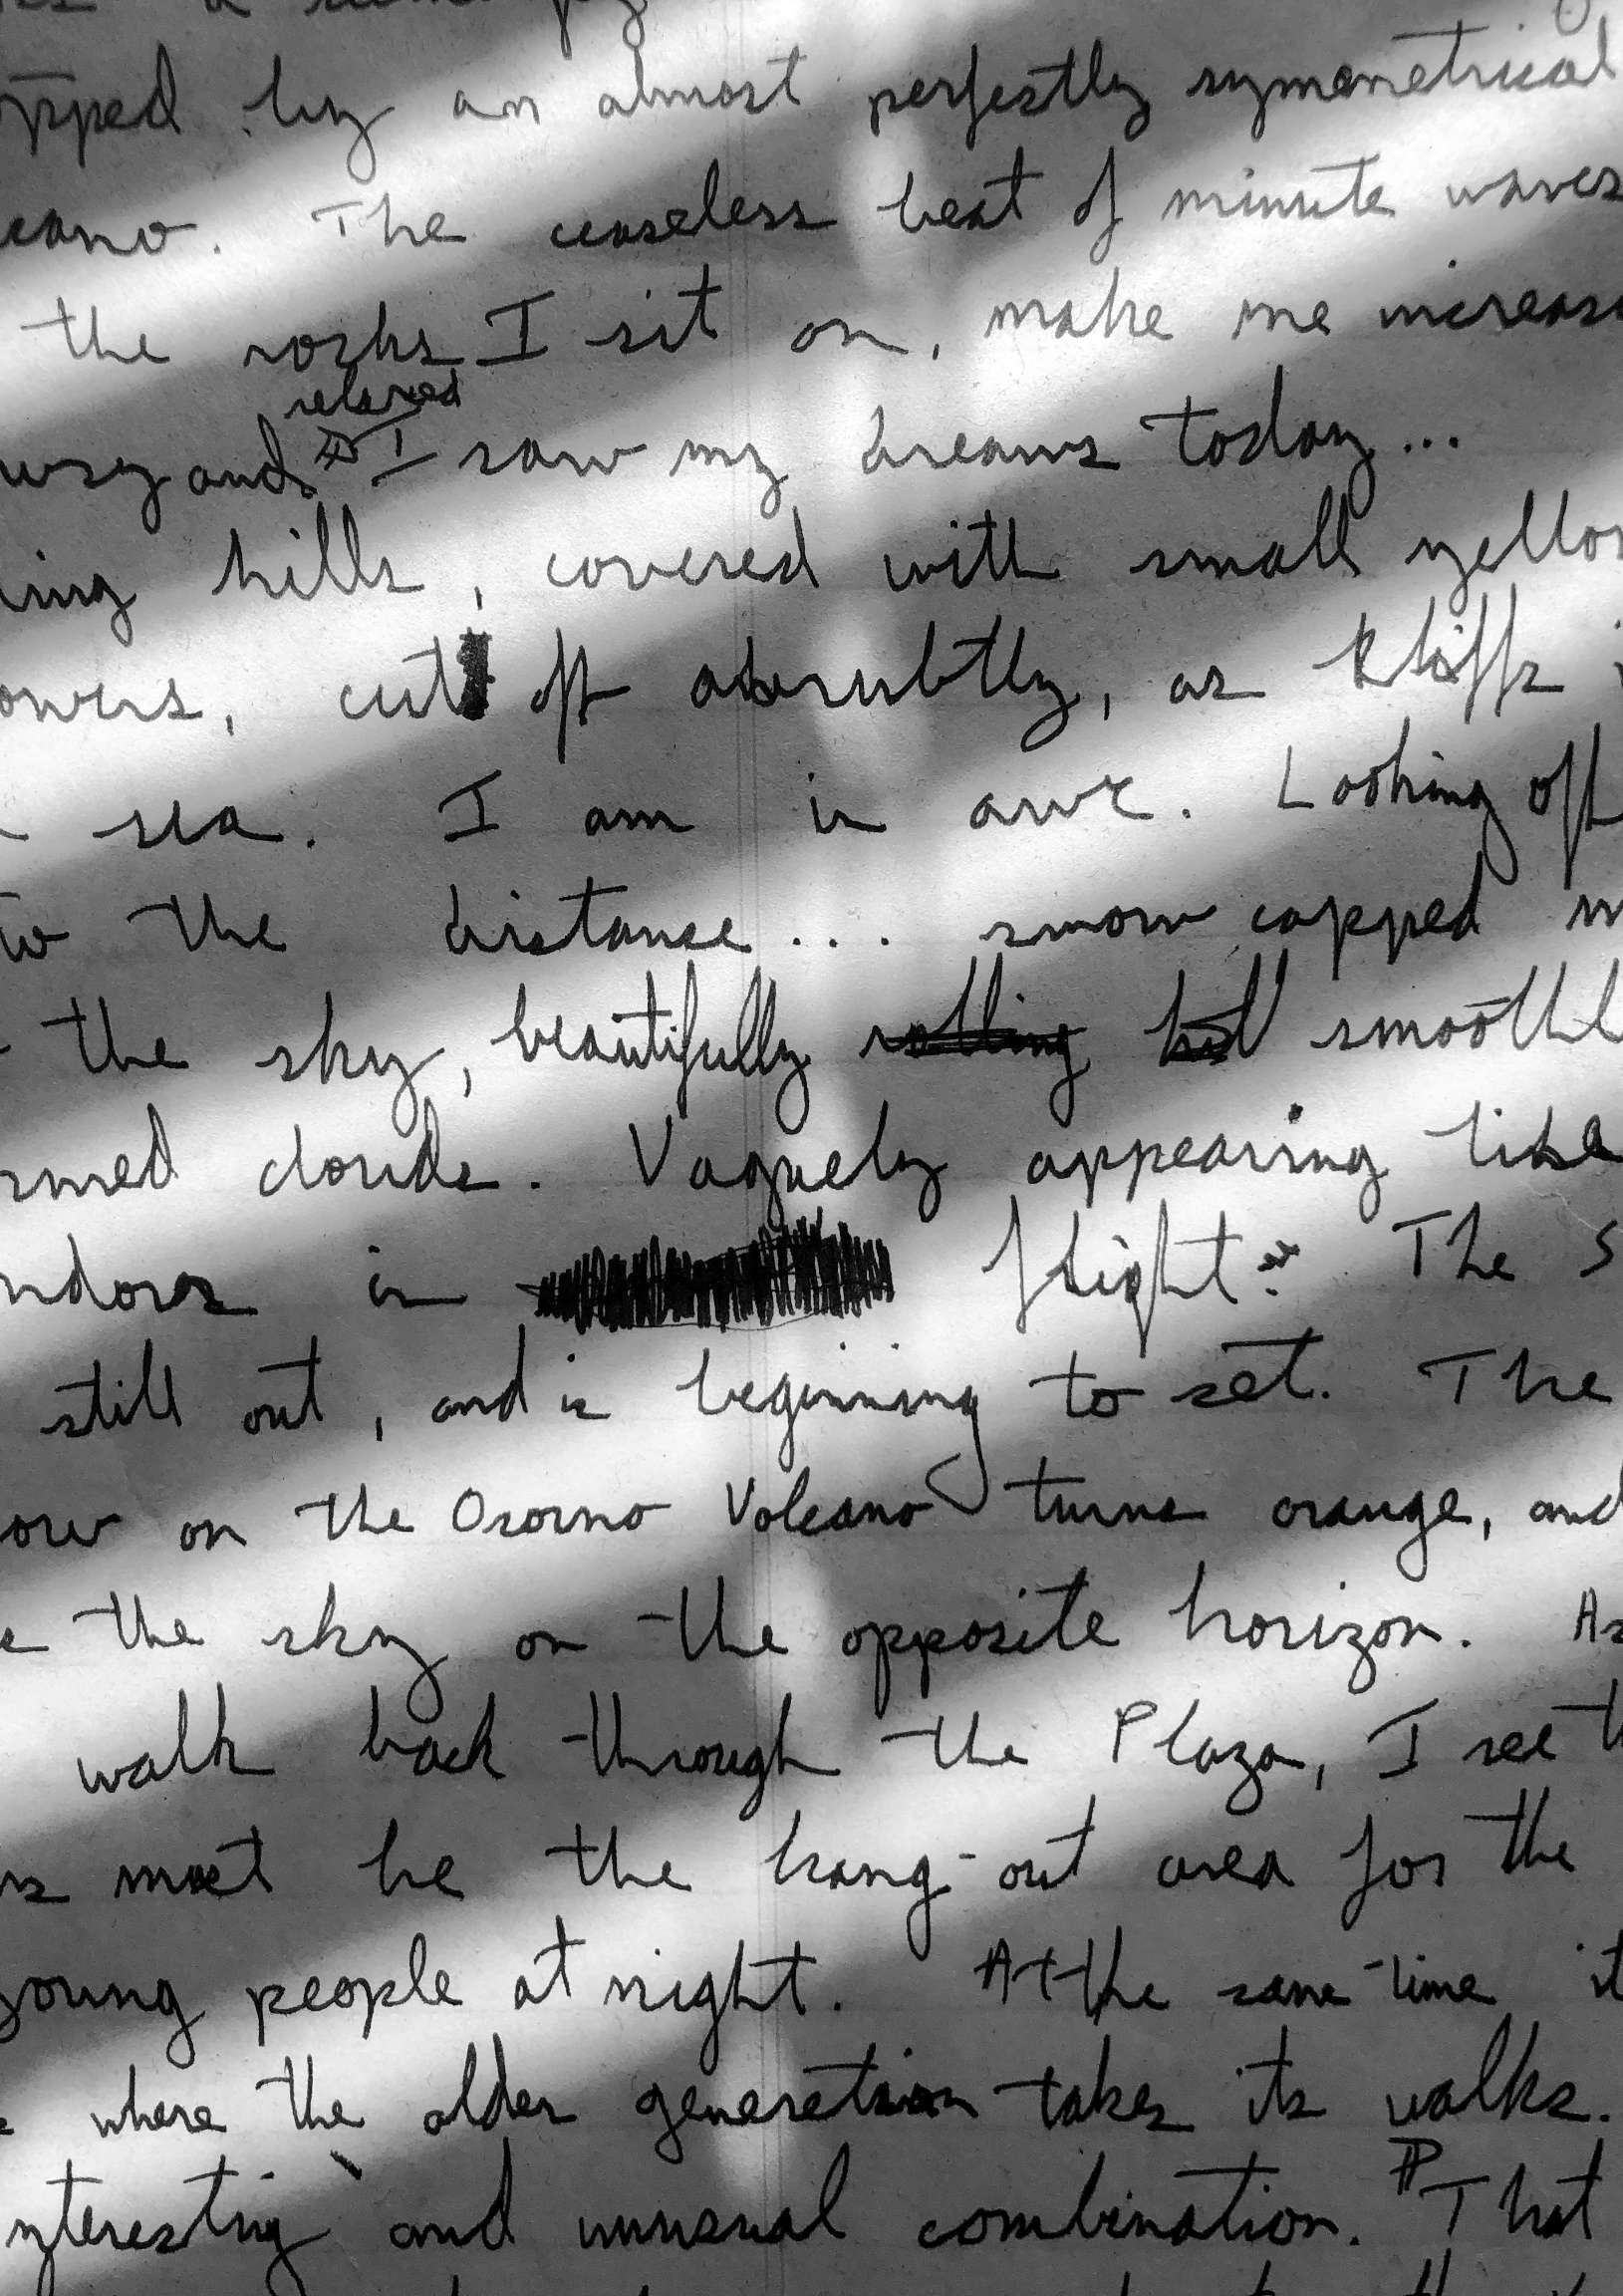 opped by an almost perfectly symmetrical
cano. The ceaseless beat of minute waves
the rocks I sit on, make me increas
relaxed
wsy and I saw my dreams today...
ling hills, covered with small yellow
owers, cut off abrubtly, as kliffs
sea. I am in awe. Looking off
to the distance... snow capped m
the sky, beautifully rolling smoothl
rmed clouds. Vaguely appearing like
ndors in flight. The s
still out, and is beginning to set. The
ow on the Osorno Volcano turns orange, and
e the sky on the opposite horizon. As
walk back through the Plaza, I see th
is must be the hang-out area for the
young people at night. At the same time it
where the older generation takes its walks.
interesting and unusual combination. That